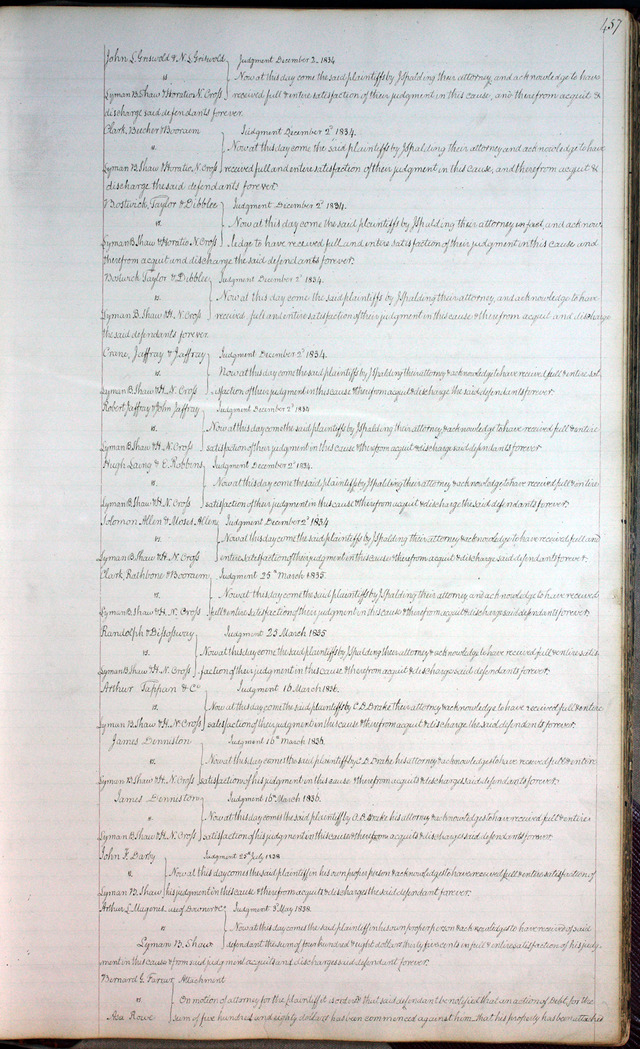 457
John L. Griswold & N. L. Griswold } Judgment December 2, 1834
vs } Now at this day come the said plaintiffs by J Spalding their attorney, and acknowledge to have
Lyman B. Shaw & Horatio N. Cross } received full & entire satisfaction of their judgment in this cause, and therefrom acquit &
discharge said defendants forever.
Clark, Beecher & Booraem } Judgment December 2d 1834.
vs. } Now at this day come the said plaintiffs by J Spalding their attorney and acknowledge to have
Lyman B Shaw & Horatio N. Cross } received full and entire satisfaction of their judgment in this cause, and therefrom acquit &
discharge the said defendants forever.
Bostwick, Taylor & Dibblee } Judgment December 2d 1834.
vs } Now at this day come the said plaintiffs by J Spalding their attorney in fact, and acknow-
Lyman B. Shaw & Horatio N. Cross } ledge to have received full and entire satisfaction of their judgment in this cause and
therefrom acquit and discharge the said defendants forever.
Bostwick Taylor & Dibblee } Judgment December 2d 1834.
vs. } Now at this day come the said plaintiffs by J Spalding their attorney, and acknowledge to have
Lyman B. Shaw & H. N. Cross } received full and entire satisfaction of their judgment in this cause & therefrom acquit and discharge
the said defendants forever.
Crane, Jaffray & Jaffray } Judgment December 2d 1834.
vs. } Now at this day come the said plaintiffs by J Spalding their attorney & acknowledge to have received full & entire sat-
Lyman B. Shaw & H. N. Cross } isfaction of their judgment in this cause & therefrom acquit & discharge the said defendants forever.
Robert Jaffray & John Jaffray } Judgment December 2d 1834
vs. } Now at this day come the said plaintiffs by J Spalding their attorney, & acknowledge to have received full & entire
Lyman B Shaw & H. N. Cross } satisfaction of their judgment in this cause & therefrom acquit & discharge said defendants forever
Hugh Laing & E. Robbins } Judgment December 2d 1834.
vs. } Now at this day come the said plaintiffs by J Spalding their attorney & acknowledge to have received full & entire
Lyman B. Shaw & H. N. Cross } satisfaction of their judgment in this cause & therefrom acquit & discharge the said defendants forever.
Solomon Allen & Moses Allen } Judgment December 2d 1834
vs } Now at this day come the said plaintiffs by J Spalding their attorney & acknowledge to have received full and
Lyman B. Shaw & H. N. Cross } entire satisfaction of their judgment in this cause & therefrom acquit & discharge said defendants forever.
Clark, Rathbone & Booraem } Judgment 25th March 1835.
vs. } Now at this day come the said plaintiffs by J Spalding their attorney and acknowledge to have received
Lyman B. Shaw & H. N. Cross } full & entire satisfaction of their judgment in this cause & therefrom acquit & discharge said defendants forever.
Randolph & Dissosway } Judgment 25 March 1835
vs. } Now at this day come the said plaintiffs by J Spalding their attorney & acknowledge to have received full & entire satis-
Lyman B. Shaw & H. N. Cross } faction of their judgment in this cause & therefrom acquit & discharge said defendants forever.
Arthur Tappan & Co } Judgment 16 March 1836.
vs. } Now at this day come the said plaintiffs by C. D. Drake their attorney & acknowledge to have received full & entire
Lyman B. Shaw & H. N. Cross } satisfaction of their judgment in this cause & therefrom acquit & discharge the said defendants forever.
James Denniston } Judgment 16th March 1836.
vs. } Now at this day comes the said plaintiff by C. D. Drake his attorney & acknowledges to have received full & entire
Lyman B Shaw & H. N. Cross } satisfaction of his judgment in this cause & therefrom acquits & discharges said defendants forever.
James Denniston } Judgment 16th March 1836.
vs. } Now at this day comes the said plaintiff by C. D. Drake his attorney & acknowledges to have received full & entire
Lyman B. Shaw & H. N. Cross } satisfaction of his judgment in this cause & therefrom acquits & discharges said defendants forever.
John F. Darby } Judgment 25th July 1838
vs. } Now at this day comes the said plaintiff in his own proper person & acknowledges to have received full & entire satisfaction of
Lyman B. Shaw } his judgment in this cause & therefrom acquits & discharges the said defendant forever.
Arthur L. Magenis, use of & Co } Judgment 3d May 1838.
vs } Now at this day comes the said plaintiff in his own proper person & acknowledges to have received of said
Lyman B. Shaw } defendant the sum of four hundred & eight dollars thirty five cents in full & entire satisfaction of his judg-
ment in this cause & from said judgment acquits and discharges said defendant forever.
Bernard G. Farrar } Attachment
vs } On motion of attorney for the plaintiff it is ordered that said defendant be notified that an action of Debt, for the
Asa Rowe } sum of five hundred and eighty dollars has been commenced against him, that his property has been attached